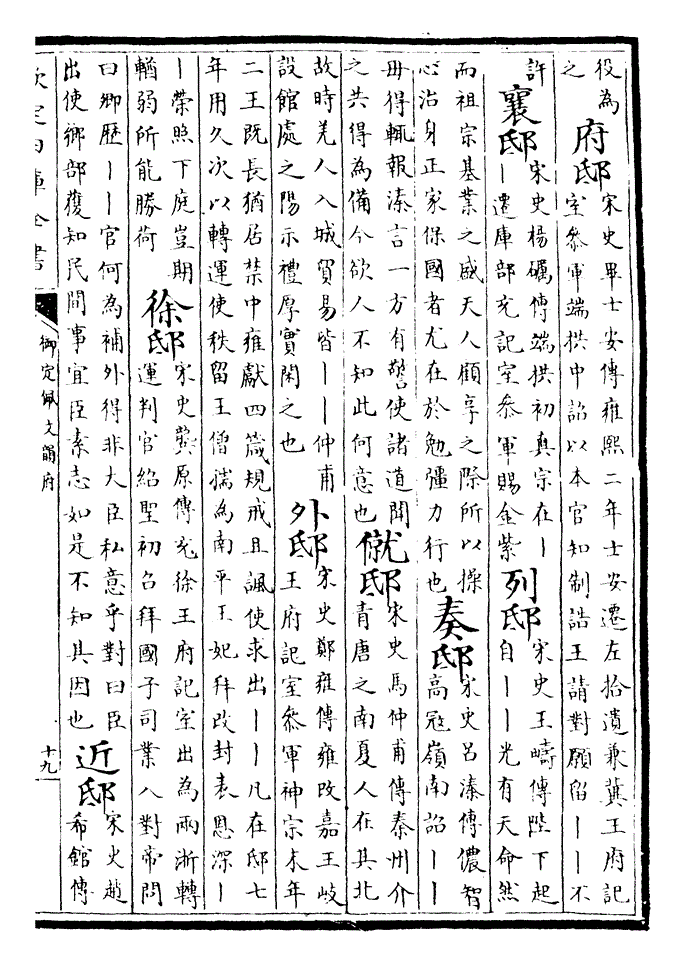 役為
之
府邸
宋史畢士安傳雍熙二年士安遷左拾遺兼冀王府記
室參軍端拱中詔以本官知制誥王請對願留丨丨不
許
襄邸
宋史楊礪傳端拱初真宗在丨
丨遷庫部充記室參軍賜金紫
列邸
宋史王疇傳陛下起
自丨丨光有天命然
而祖宗基業之盛天人顧享之際所以操
心治身正家保國者尤在於勉彊力行也
奏邸
宋史呂溱傳儂智
高冦嶺南詔丨丨
毋得輒報溱言一方有警使諸道聞
之共得為備今欲人不知此何意也
僦邸
宋史馬仲甫傳秦州介
青唐之南夏人在其北
故時羌人入城貿易皆丨丨仲甫
設館處之陽示禮厚實閑之也
外邸
宋史鄭雍傳雍改嘉王岐
王府記室參軍神宗末年
二王既長猶居禁中雍獻四箴規戒且諷使求出丨丨凡在邸七
年用久次以轉運使秩留王僧孺為南平王妃拜改封表恩深丨
丨榮照下庭豈期
輶弱所能勝荷
徐邸
宋史龔原傳充徐王府記室出為兩浙轉
運判官紹聖初召拜國子司業入對帝問
曰卿歷丨丨官何為補外得非大臣私意乎對曰臣
出使鄉部獲知民間事宜臣素志如是不知其因也
近邸
宋史趙
希館傳
欽定四庫全書
御定佩文韻府
十九